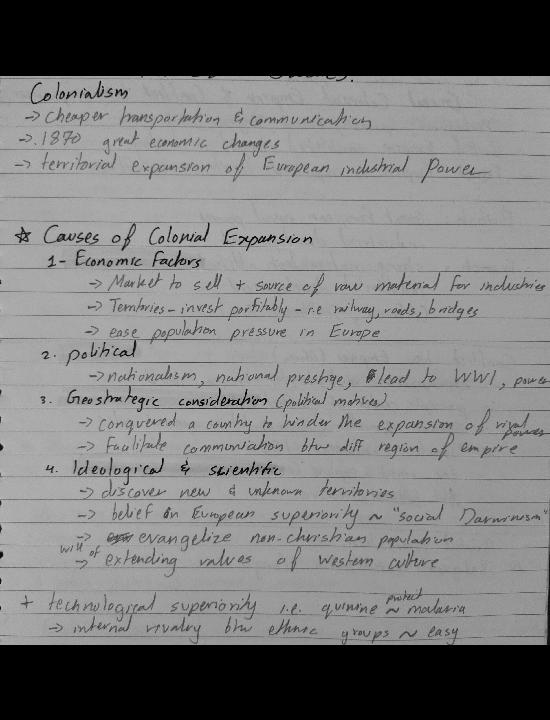 Colonialism
→ cheaper transportation & communication
→ .1870 great economic changes
→ territorial expansion of European industrial Power
☆ Causes of Colonial Expansion
1- Economic Factors
→ Market to sell + source of raw material for industries
→ Territories - invest porfitably - i.e railway, roads, bridges
→ ease population pressure in Europe
2. political
→ nationalism, national prestige, lead to WWI, power
3. Geostrategic consideration (political motives)
→ conquered a country to hinder the expansion of rival powers
→ Facilitate communication btw diff region of empire
4. Ideological & scientific
→ discover new & unknown territories
→ belief in European superiority ~ "social Darwinism"
→ evangelize non-christian population
will of
→ extending values of western culture
+ technological superiority i.e. quinine ~ protect malaria
→ internal rivalry btw ethnic groups ~ easy